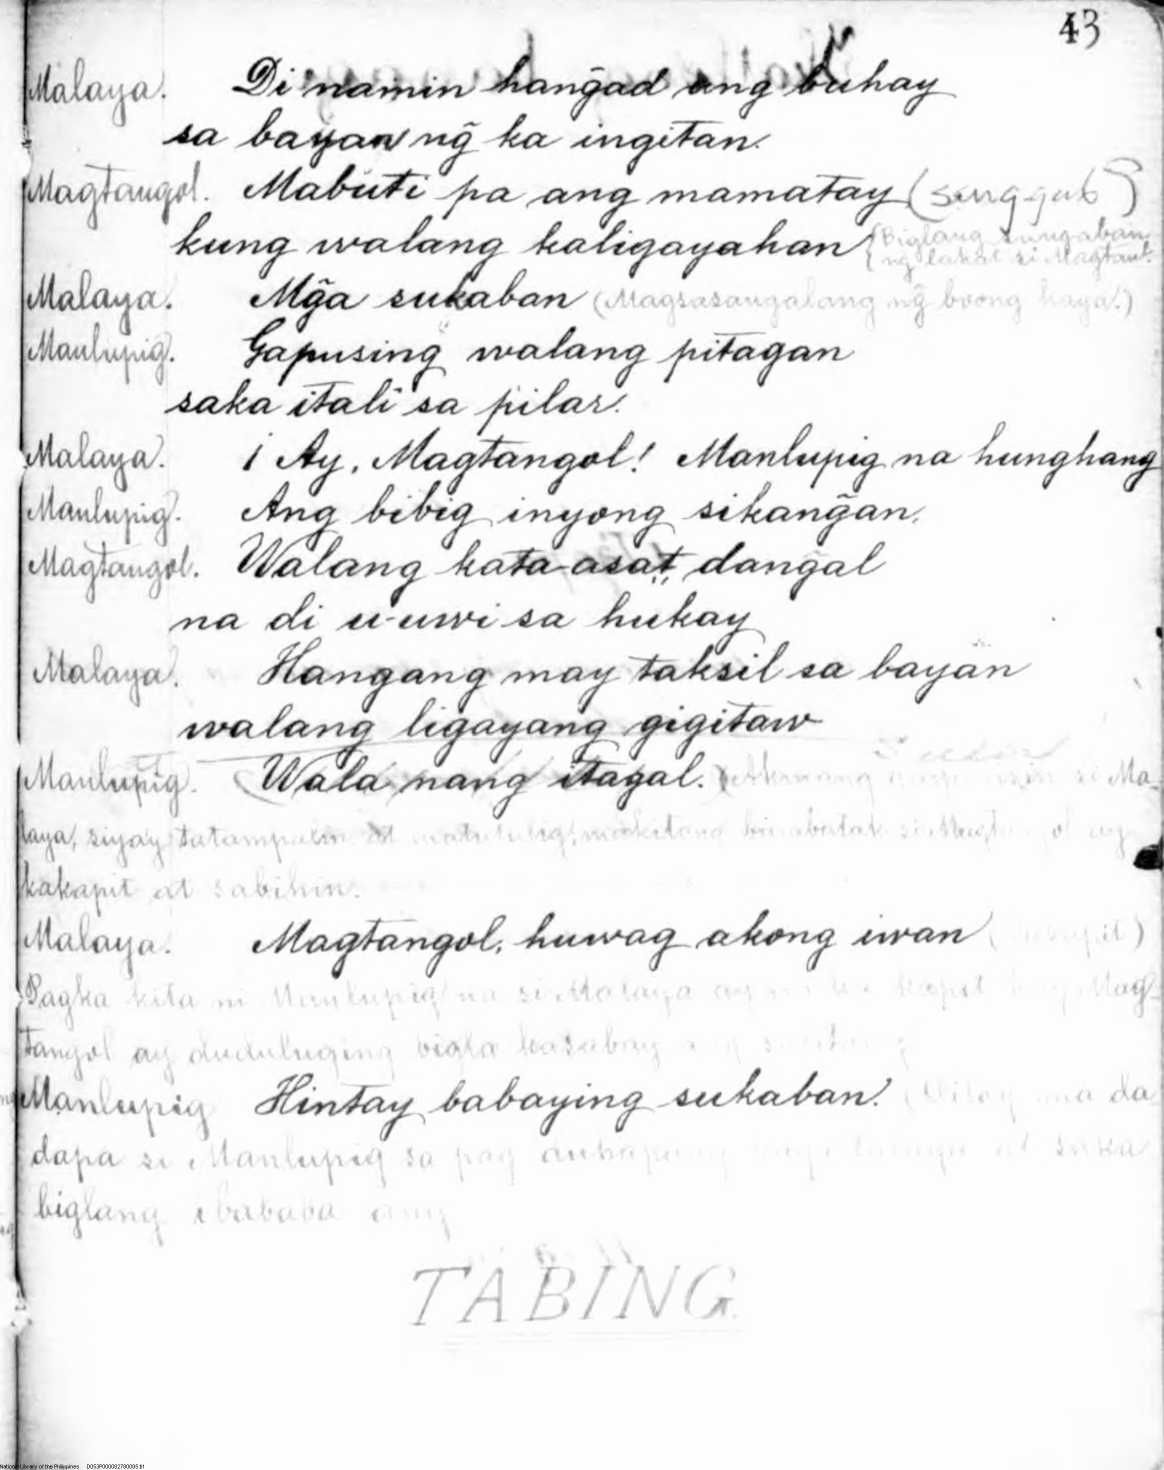 43
Malaya. Di namin hang̃ad ang buhay
sa bayan ng̃ ka ingitan.
Magtangol. Mabuti pa ang mamatay (sunggab)
kung walang kaligayahan (Biglang sungaban
ng lakat si Magtan
Malaya. Mg̃a sukaban (Magsasangalang ng̃ boong kaya.)
Manlupig. Gapusing walang pitagan
saka itali sa pilar.
Malaya. ¡Ay, Magtangol! Manlupig na hunghang
Manlupig. Ang bibig inyong sikang̃an.
Magtangol. Walang kata-asat dang̃al
na di u-uwi sa hukay
Malaya. Hangang may taksil sa bayan
walang ligayang gigitaw
Manlupig. Wala nang itagal. si Ma-
laya, siyay tatampalin at
kakapit at sabihin.
Malaya. Magtangol, huwag akong iwan
Pagka kita ni Manlupig na si Malaya ay kapit kay Mag-
tangol ay duduluging bigla kasabay ang
Manlupig Hintay babaying sukaban! da
dapa si Manlupig sa pag at saka
biglang ibababa ang
TABING.
National Library of the Philippines